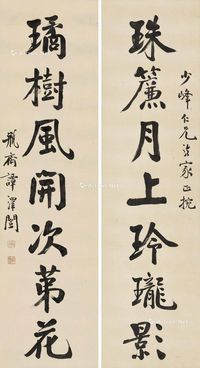 少峰仁兄法家正捥
珠簾月上玲瓏影
璚樹風開次苐花
瓶齋譚澤闓